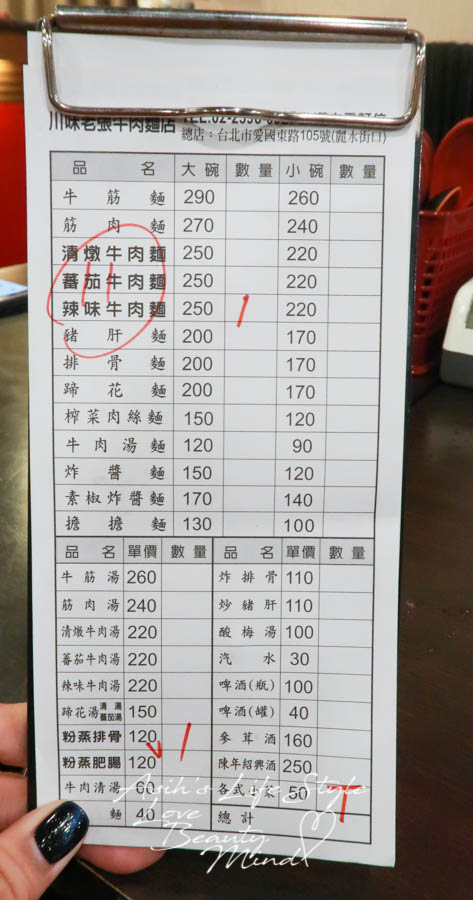 川味老張牛肉麵店
總店：台北市愛國東路105號(麗水街口)
品名 大碗 數量 小碗 數量
牛筋麵 290 260
筋肉麵 270 240
清燉牛肉麵 250 220
蕃茄牛肉麵 250 220
辣味牛肉麵 250 1 220
豬肝麵 200 170
排骨麵 200 170
蹄花麵 200 170
榨菜肉絲麵 150 120
牛肉湯麵 120 90
炸醬麵 150 120
素椒炸醬麵 170 140
擔擔麵 130 100
品名 單價 數量 品名 單價 數量
牛筋湯 260 炸排骨 110
筋肉湯 240 炒豬肝 110
清燉牛肉湯 220 酸梅湯 100
蕃茄牛肉湯 220 汽水 30
辣味牛肉湯 220 啤酒(瓶) 100
蹄花湯 清湯 蕃茄湯 150 啤酒(罐) 40
粉蒸排骨 120 1 參茸酒 160
粉蒸肥腸 120 陳年紹興酒 250
牛肉清湯 60 各式小菜 50 1
麵 40 總計
Asih's Life Style
Love
Beauty
Mind